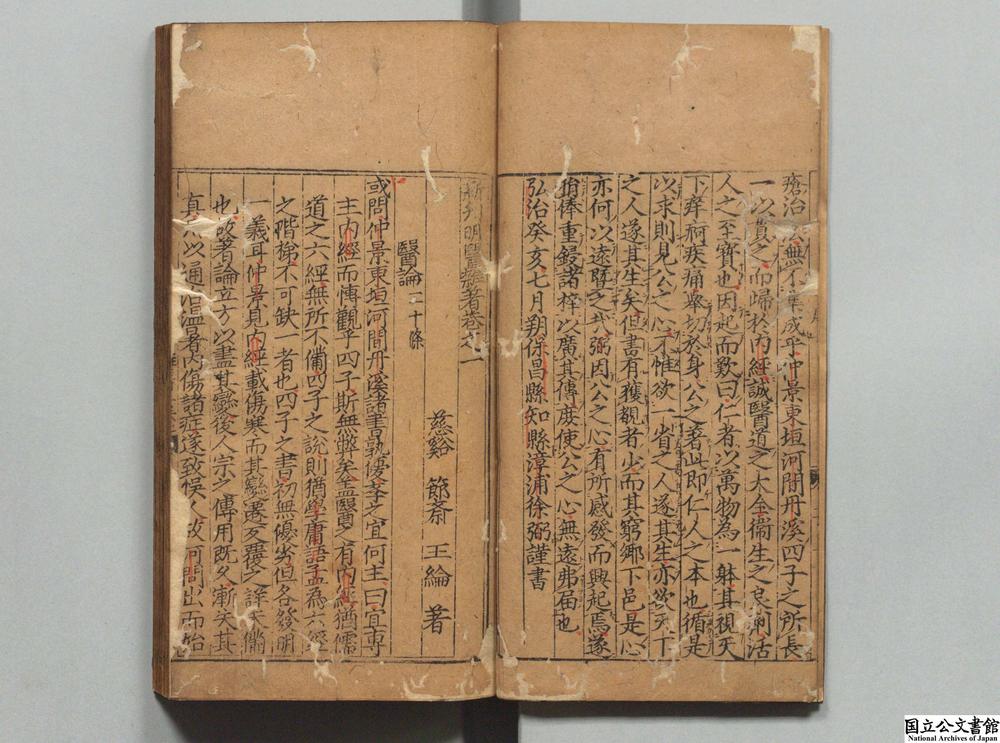 瘡治無不集成乎仲景東垣河間丹溪四子之所長
一以貫之而歸於内經誠醫道之大全衛生之良劑活
人之至寳也因起而歎曰仁者以萬物為一躰其視天
下痒痾疾痛舉切於身公之著此即仁人之本也循是
以求則見公之心不惟欲一省之人遂其生亦欲天下
之人遂其生矣但書有獲覩者少而其窮鄉下邑是心
亦何以遠暨之哉弼因公之心有所感發而興起焉遂
捐俸重鋟諸梓以廣其傳庻使公之心無遠弗届也
弘治癸亥七月朔保昌縣知縣漳浦徐弼謹書
新刋明醫雜著卷之一
慈谿節斎王綸著
醫論二十條
或問仲景東垣河間丹溪諸書孰優學之宜何主曰宜專
主内經而慱觀乎四子斯無弊矣盖醫之有内經猶儒
道之六經無所不備四子之説則猶學庸語孟為六經
之階梯不可缺一者也四子之書初無優劣但各發明
一義耳仲景見内經載傷寒而其變遷反覆之詳未備
也故著論立方以盡其變後人宗之傳用既久漸失其
真以通治温暑内傷諸症遂致悞人故河間出而始
国立公文書館
National Archives of Japan